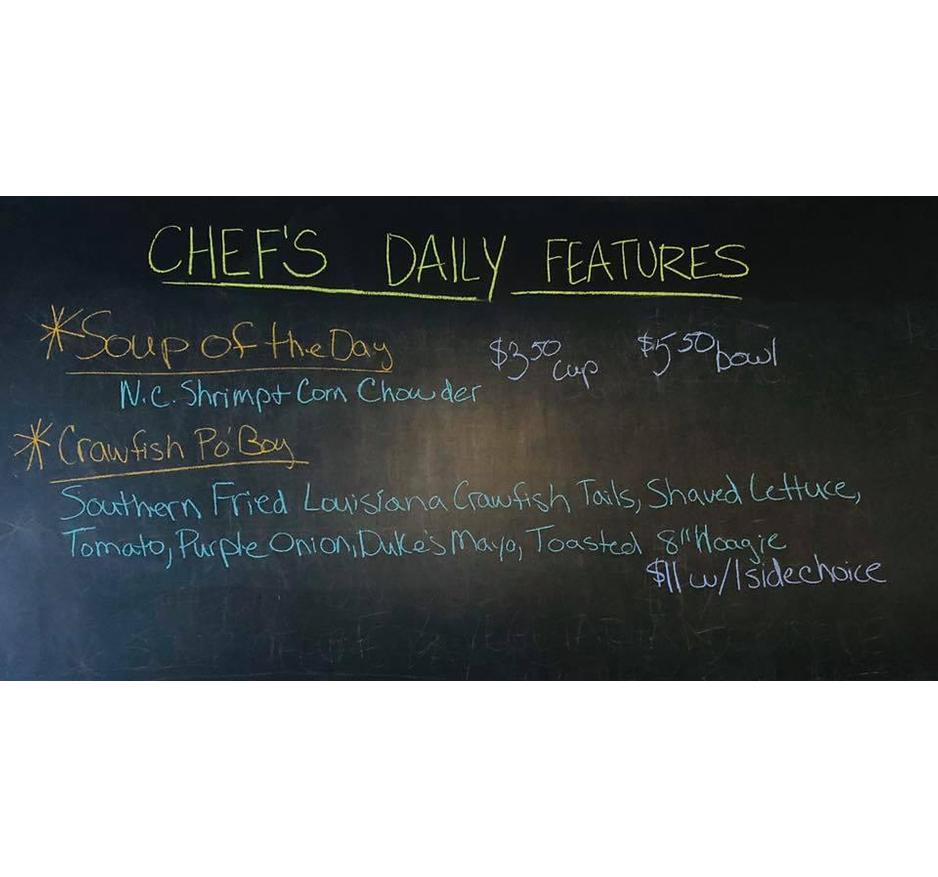 CHEF'S DAILY FEATURES
*Soup of the Day $3.50 cup $5.50 bowl
N.C. Shrimp + Corn Chowder
*Crawfish Po'Boy
Southern Fried Louisiana Crawfish Tails, Shaved Lettuce,
Tomato, Purple Onion, Duke's Mayo, Toasted 8" Hoagie
$11 w/1 side choice